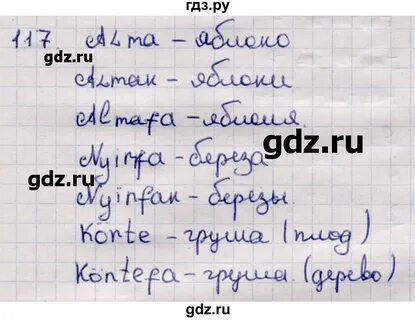 гдз.ру
117 Alma – яблоко
Almak – яблоки
Almafa – яблоня.
gdz.ru
gdz.ru
Nyirfa – береза
Nyirfak – березы.
Körte – груша (плод)
gdz.ru
Körtefa – груша (дерево)
gdz.ru